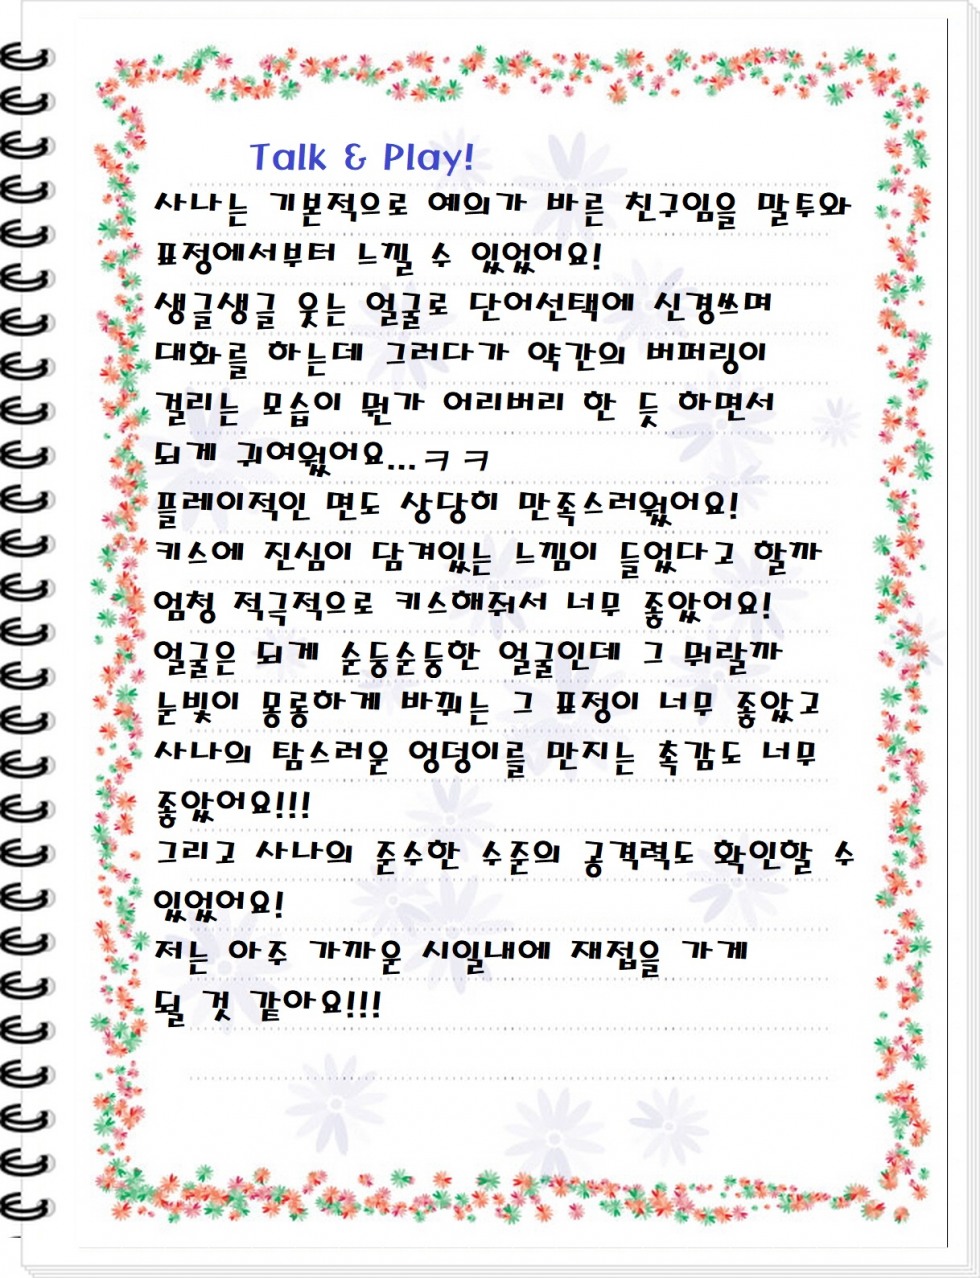 Talk & Play!
사나는 기본적으로 예의가 바른 친구임을 말투와
표정에서부터 느낄 수 있었어요!
생글생글 웃는 얼굴로 단어선택에 신경쓰며
대화를 하는데 그러다가 약간의 버퍼링이
걸리는 모습이 뭔가 어리버리 한 듯 하면서
되게 귀여웠어요...ㅋㅋ
플레이적인 면도 상당히 만족스러웠어요!
키스에 진심이 담겨있는 느낌이 들었다고 할까
엄청 적극적으로 키스해줘서 너무 좋았어요!
얼굴은 되게 순둥순둥한 얼굴인데 그 뭐랄까
눈빛이 몽롱하게 바뀌는 그 표정이 너무 좋았고
사나의 탐스러운 엉덩이를 만지는 촉감도 너무
좋았어요!!!
그리고 사나의 준수한 수준의 공격력도 확인할 수
있었어요!
저는 아주 가까운 시일내에 재접을 가게
될 것 같아요!!!